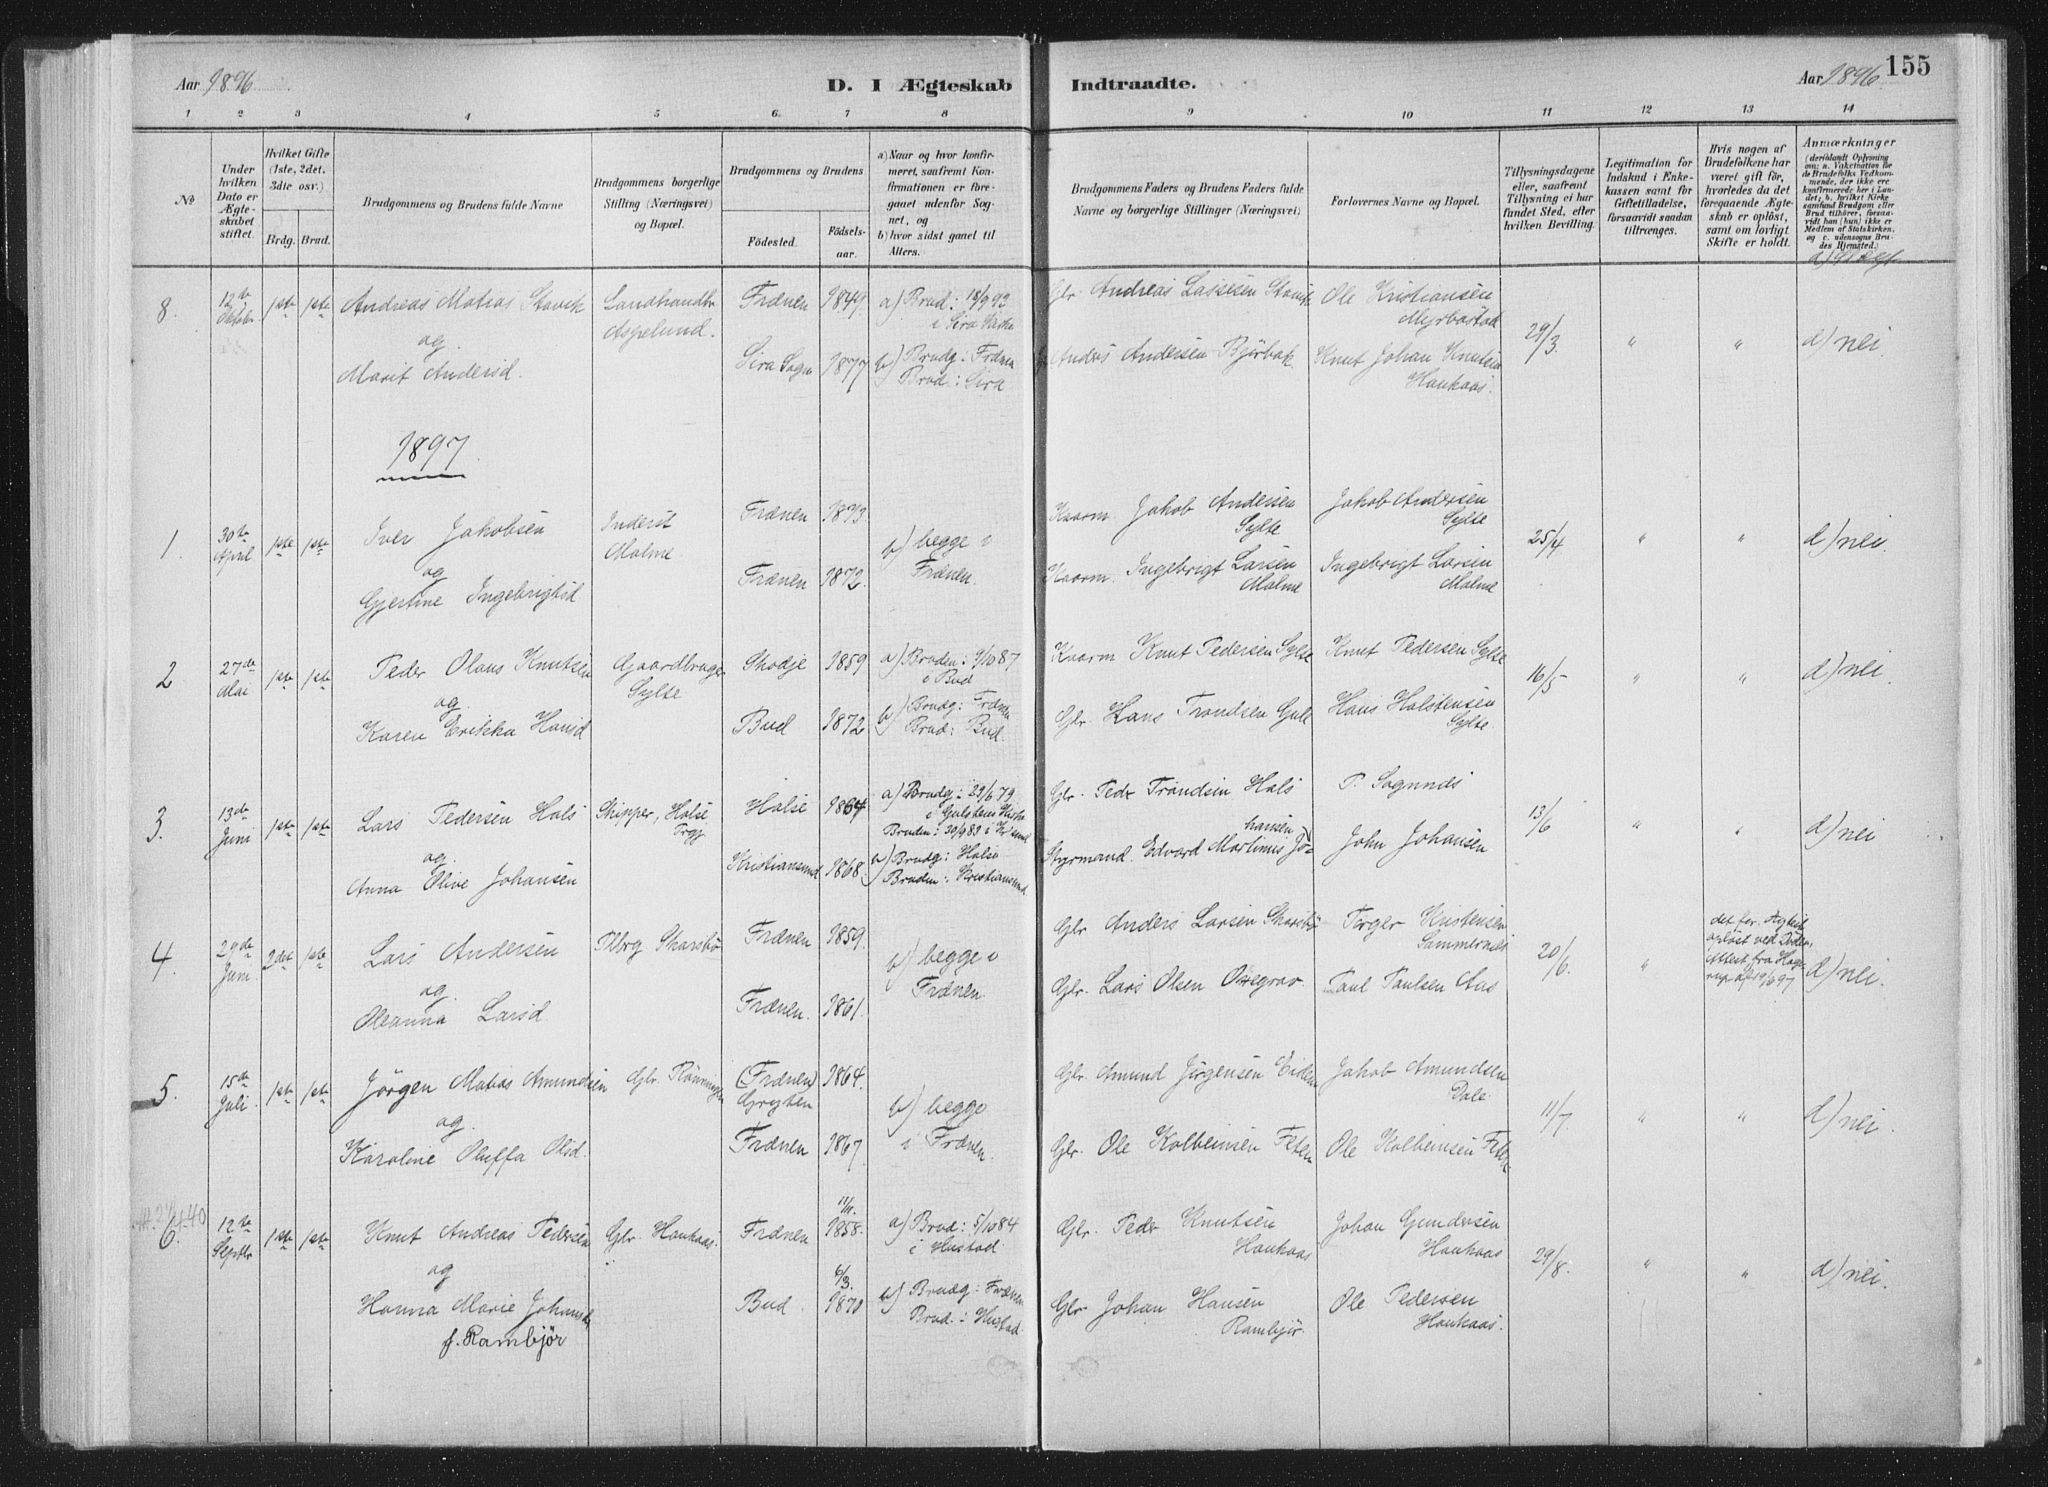 Aar 1896
D. I Ægteskab Indtraadte.
Aar 1896
155
1 2 3 4 5 6. 7 8 9 10 11 12 13 14
No
Under hvilken Dato er Ægteskabet stiftet.
Hvilket Gifte (1ste, 2det, 3dte osv.)
Brdg. Brud.
Brudgommens og Brudens fulde Navne
Brudgommens borgerlige Stilling (Næringsvei) og Bopæl.
Brudgommens og Brudens
Fødested.
Fødselsaar.
a) Naar og hvor konfirmeret, saafremt Konfirmationen er foregaaet udenfor Sognet, og
b) hvor sidst gaaet til Alters.
Brudgommens Faders og Brudens Faders fulde Navne og borgerlige Stillinger (Næringsvei)
Forlovernes Navne og Bopæl.
Tillysningsdagene eller, saafremt Tillysning ei har fundet Sted, efter hvilken Bevilling.
Legitimation for Indskud i Enkekassen samt for Giftetilladelse, forsaavidt saadan tiltrænges.
Hvis nogen af Brudefolkene har været gift før, hvorledes da det foregaaende Ægteskab er opløst, samt om lovligt Skifte er holdt.
Anmærkninger
(deriblandt Oplysning om: a. Vakcination for de Brudefolks Vedkommende, der ikke ere konfirmerede her i Landet; b. hvilket Kirkesamfund Brudgom eller Brud tilhører, forsaavidt han (hun) ikke er Medlem af Statskirken, og c. udensogns Brudes Hjemsted.)
8. 12te Oktobr 1ste 1ste
Andreas Matias Stavik
og
Marit Andersd.
Landhandlr Aspelund.
Frænen 1849.
Sira Sogn 1877
a) Brud: 18/9 92 i Sira Kirke
b) Brudg: Frænen
Brud: Sira
Glr. Andreas Lassesen Stavik
Anders Andersen Bjørbak.
Ole Kristiansen Myrbostad
Knut Johan Knutsen Haukaas.
29/3. " " d) nei.
1897
1. 30te April 1ste 1ste
Iver Jakobsen
og
Gjertine Ingebrigtsd
Inderst Malme
Frænen 1873.
Frænen 1872.
b) begge i Frænen.
Kaarm Jakob Andersen Sylte
Kaarm. Ingebrigt Larsen Malme
Jakob Andersen Sylte
Ingebrigt Larsen Malme
25/4 " " d) nei.
2 27de Mai 1ste 1ste
Peder Olaus Knutsen
og
Karen Erikka Hansd
Gaardbruger Sylte
Skodje 1859
Bud 1872
a) Bruden: 9/10 87 i Bud
b) Brudg: Frænen
Brud: Bud.
Kaarm Knut Pedersen Sylte
Glr. Hans Trondsen Gule
Knut Pedersen Sylte
Hans Halstensen Sylte.
16/5 " " d) nei.
3. 13de Juni 1ste 1ste
Lars Pedersen Hals
og
Anna Olive Johansen
Skipper, Halse Prgj
Halse 1864
Kristiansund 1868.
a) Brudg: 29/6 79 i
Bruden: 30/9 83 i Kr.sund
b) Brudg: Halse
Bruden: Kristiansund
Glr. Peder Trondsen Hals
Styrmand. Edvard Martinus Johansen
P. Sognnæs
John Johansen
13/6 " " d) nei
4. 29de Juni 2det 1ste
Lars Andersen
og
Oleanna Larsd.
Plbrg Skarsbø
Frænen 1859.
Frænen. 1861.
b) begge i Frænen.
Glr Anders Larsen Skarsbø
Glr. Lars Olsen Orregrav.
Torger Kristensen Sammernes
Paul Paulsen Aas
20/6. "
det for. Ægtesk. opløst ved Døden, Attest fra af 19/6 97
d) nei.
5. 15de Juli. 1ste 1ste
Jørgen Matias Amundsen
og
Karoline Oluffa Olsd.
Glr. Rønningen
(Frænen) Grytten 1864.
Frænen 1867.
b) begge i Frænen.
Glr. Amund Jørgensen Eiden
Glr. Ole Kolbeinsen Feten
Jakob Amundsen Dale
Ole Kolbeinsen Feten
11/7. " " d) nei.
6. 12te Septbr 1ste 1ste
Knut Andreas Pedersen
og
Hanna Marie Johansd
f. Rambjør
Glr. Haukaas.
Frænen 1858.
Bud. 6/3. 1870
a) Brud: 5/10 84 i Hustad
b) Brudg: Frænen
Brud: Hustad.
Glr. Peder Knutsen Haukaas
Glr Johan Hansen Rambjør.
Johan Gundersen Haukaas
Ole Pedersen Haukaas.
29/8. " " d) nei.